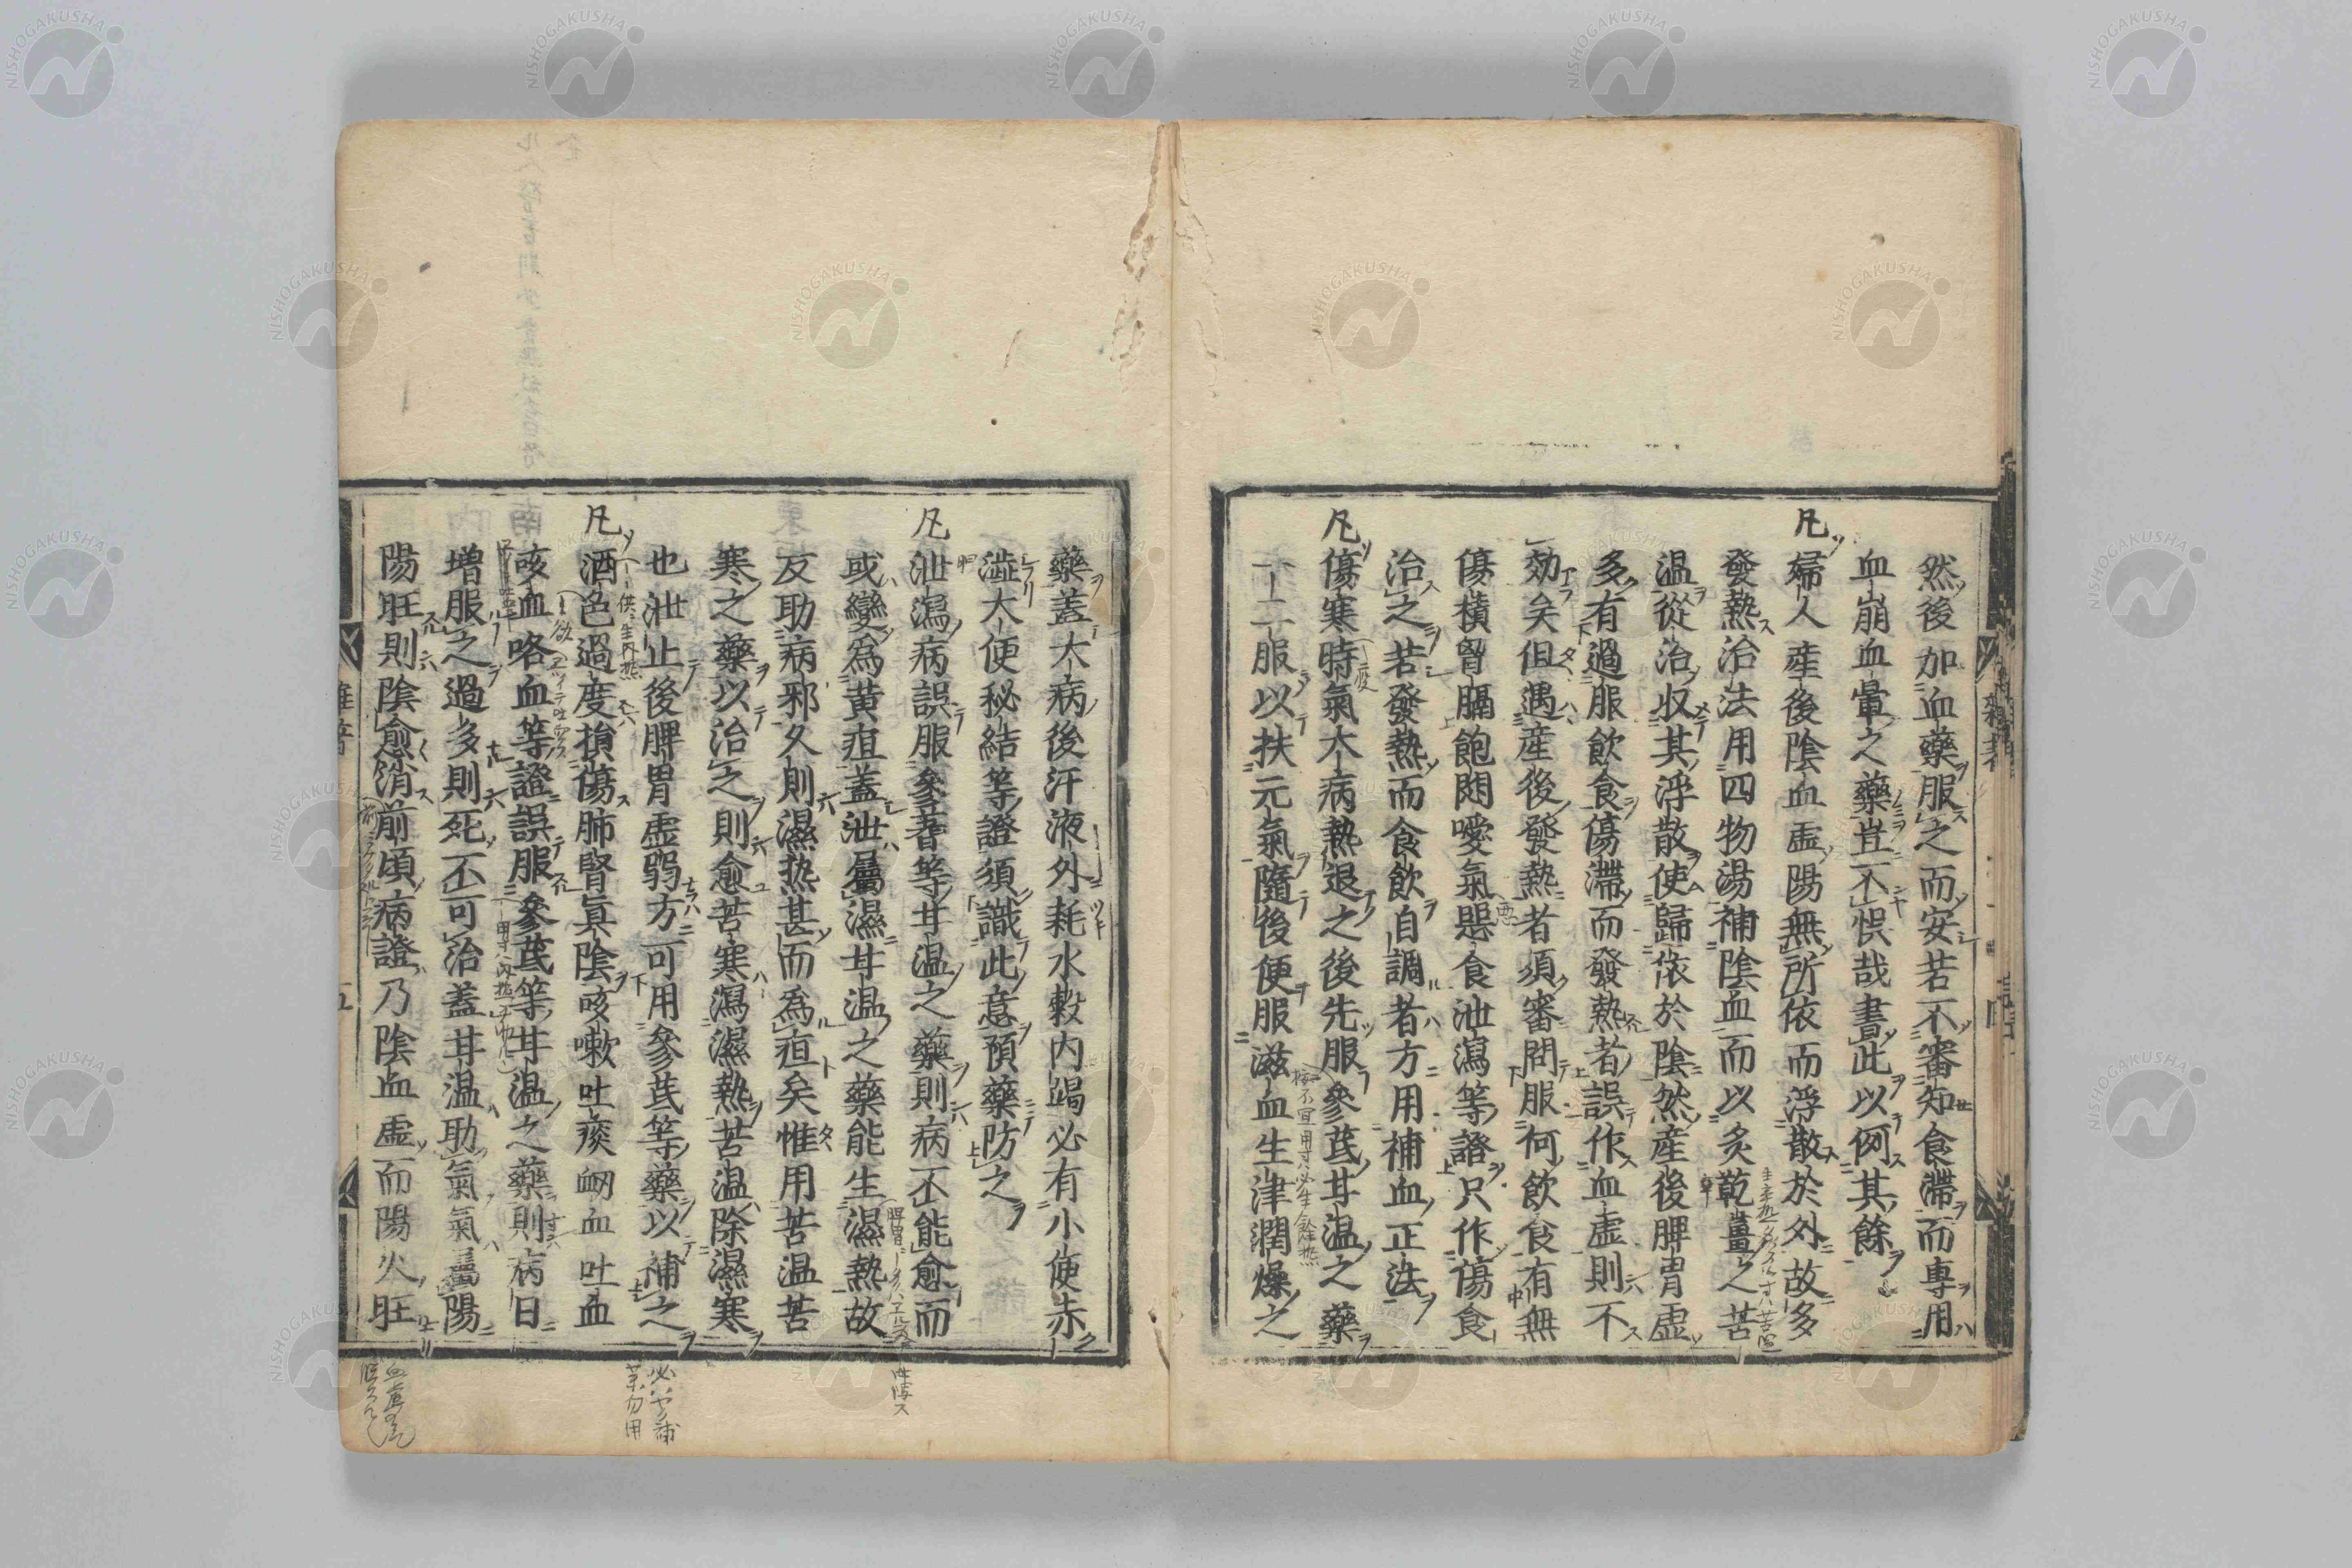 然後加血藥服之而安若不審知食滯而專用
血崩血暈之藥豈不悞哉書此以例其餘
凡婦人産後陰血虛陽無所依而浮散於外故多
發熱治法用四物湯補陰血而以炙乾薑之苦
温從治收其浮散使歸依於陰然産後脾胃虛
多有過服飲食傷滯而發熱者誤作血虛則不
効矣但遇産後發熱者須審問服何飲食有無
傷積胷膈飽悶噯氣惡食泄瀉等證只作傷食
治之若發熱而食飲自調者方用補血正法
凡傷寒時氣大病熱退之後先服參芪甘温之藥
一二服以扶元氣隨後便服滋血生津潤燥之
藥蓋大病後汗液外耗水穀内竭必有小便赤
澁大便秘結等證須識此意預藥防之
凡泄瀉病誤服參耆等甘温之藥則病不能愈而
或變爲黄疸蓋泄屬濕甘温之藥能生濕熱故
反助病邪久則濕热甚而爲疸矣惟用苦温苦
寒之藥以治之則愈苦寒瀉濕熱苦温除濕寒
也泄止後脾胃虛弱方可用參芪等藥以補之
凡酒色過度損傷肺腎眞陰咳嗽吐痰衂血吐血
咳血咯血等證誤服參芪等甘温之藥則病日
増服之過多則死不可治蓋甘温助氣氣屬陽
陽旺則陰愈消前頃病證乃陰血虛而陽火旺